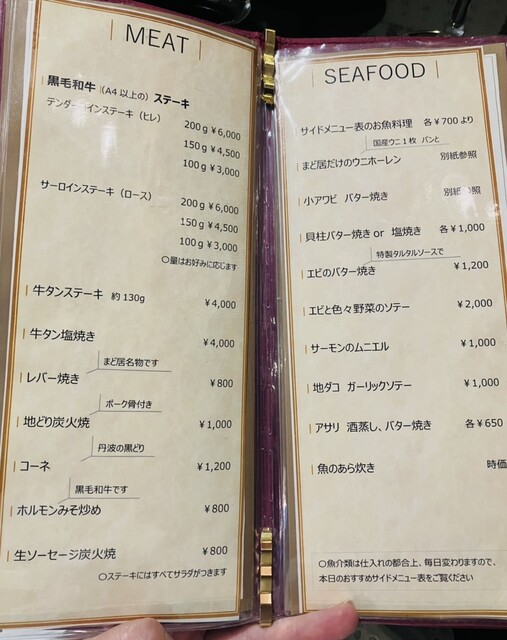 MEAT
黒毛和牛（A4以上の）ステーキ
テンダーロインステーキ（ヒレ）
200g ¥6,000
150g ¥4,500
100g ¥3,000
サーロインステーキ（ロース）
200g ¥6,000
150g ¥4,500
100g ¥3,000
○量はお好みに応じます
牛タンステーキ 約130g ¥4,000
牛タン塩焼き ¥4,000
まど居名物です
レバー焼き ¥800
ポーク骨付き
地どり炭火焼 ¥1,000
丹波の黒どり
コーネ ¥1,200
黒毛和牛です
ホルモンみそ炒め ¥800
生ソーセージ炭火焼 ¥800
○ステーキにはすべてサラダがつきます
SEAFOOD
サイドメニュー表のお魚料理 各¥700より
国産ウニ1枚 パンと
まど居だけのウニホーレン 別紙参照
小アワビ バター焼き 別紙参照
貝柱バター焼き or 塩焼き 各¥1,000
特製タルタルソースで
エビのバター焼き ¥1,200
エビと色々野菜のソテー ¥2,000
サーモンのムニエル ¥1,000
地ダコ ガーリックソテー ¥1,000
アサリ 酒蒸し、バター焼き 各¥650
魚のあら炊き 時価
○魚介類は仕入れの都合上、毎日変わりますので、
本日のおすすめサイドメニュー表をご覧ください